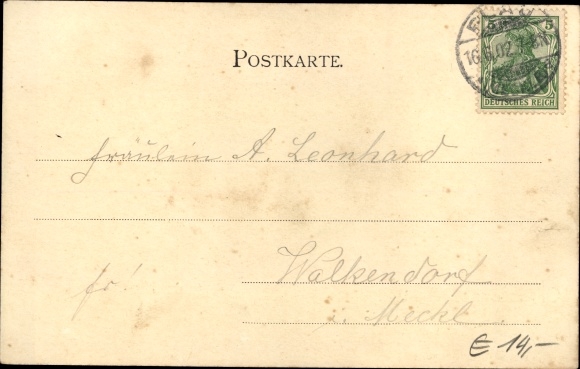 POSTKARTE.
5
16. 02
DEUTSCHES REICH
Fräulein A. Leonhard
Walkendorf
fr!
i. Meckl.
€ 14,-